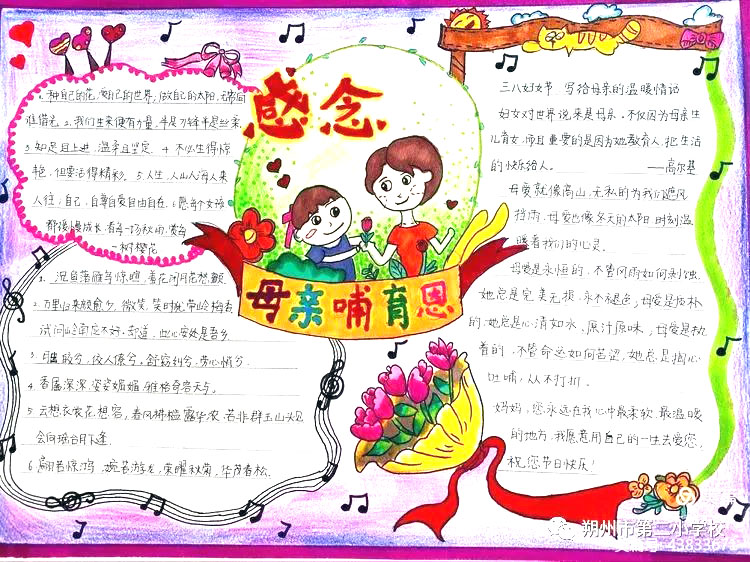 感念
母亲哺育恩
1. 种自己的花,爱自己的世界,做自己的太阳,无需向
谁借光 2. 我们生来便有力量,半是刀锋半是丝柔
3 知足且上进,温柔且坚定 4 不必生得惊
艳,但要活得精彩 5 人生,人山人海人来
人往,自己,自尊自爱自由自在 6 愿每个女孩
都被
成长
1. 沉鱼落雁鸟惊喧,羞花闭月花愁颤
2. 万里归来颜愈少,微笑,笑时犹带岭梅香
试问岭南应不好,却道,此心安处是吾乡
3. 月出皎兮,佼人僚兮,舒窈纠兮,劳心悄兮
4. 香雾深深,姿姿媚媚,雅格奇容天与
5 云想衣裳花想容,春风拂槛露华浓 若非群玉山头见
会向瑶台月下逢
6 翩若惊鸿,婉若游龙,荣曜秋菊,华茂春松
三八妇女节 写给母亲的温暖情话
妇女对世界说来是母亲,不仅因为母亲生
儿育女,而且重要的是因为她教育人,把生活
的快乐给人。 ——高尔基
母爱就像高山,无私的为我们遮风
挡雨,母爱也像冬天的太阳,时刻温
暖着我们的心灵。
母爱是永恒的,不管风雨如何剥蚀,
她总是完美无损,永不褪色;母爱是质朴
的,她总是心清如水,原汁原味;母爱是执
着的,不管命运如何苦望,她总是掏心
吐哺,从不打折。
妈妈,您永远在我心中最柔软、最温暖
的地方,我愿意用自己的一生去爱您,
祝您节日快乐!
朔州市第二小学校